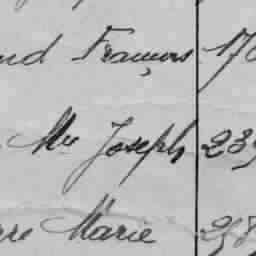 nd François 17
Mie Joseph 239
rre Marie 258